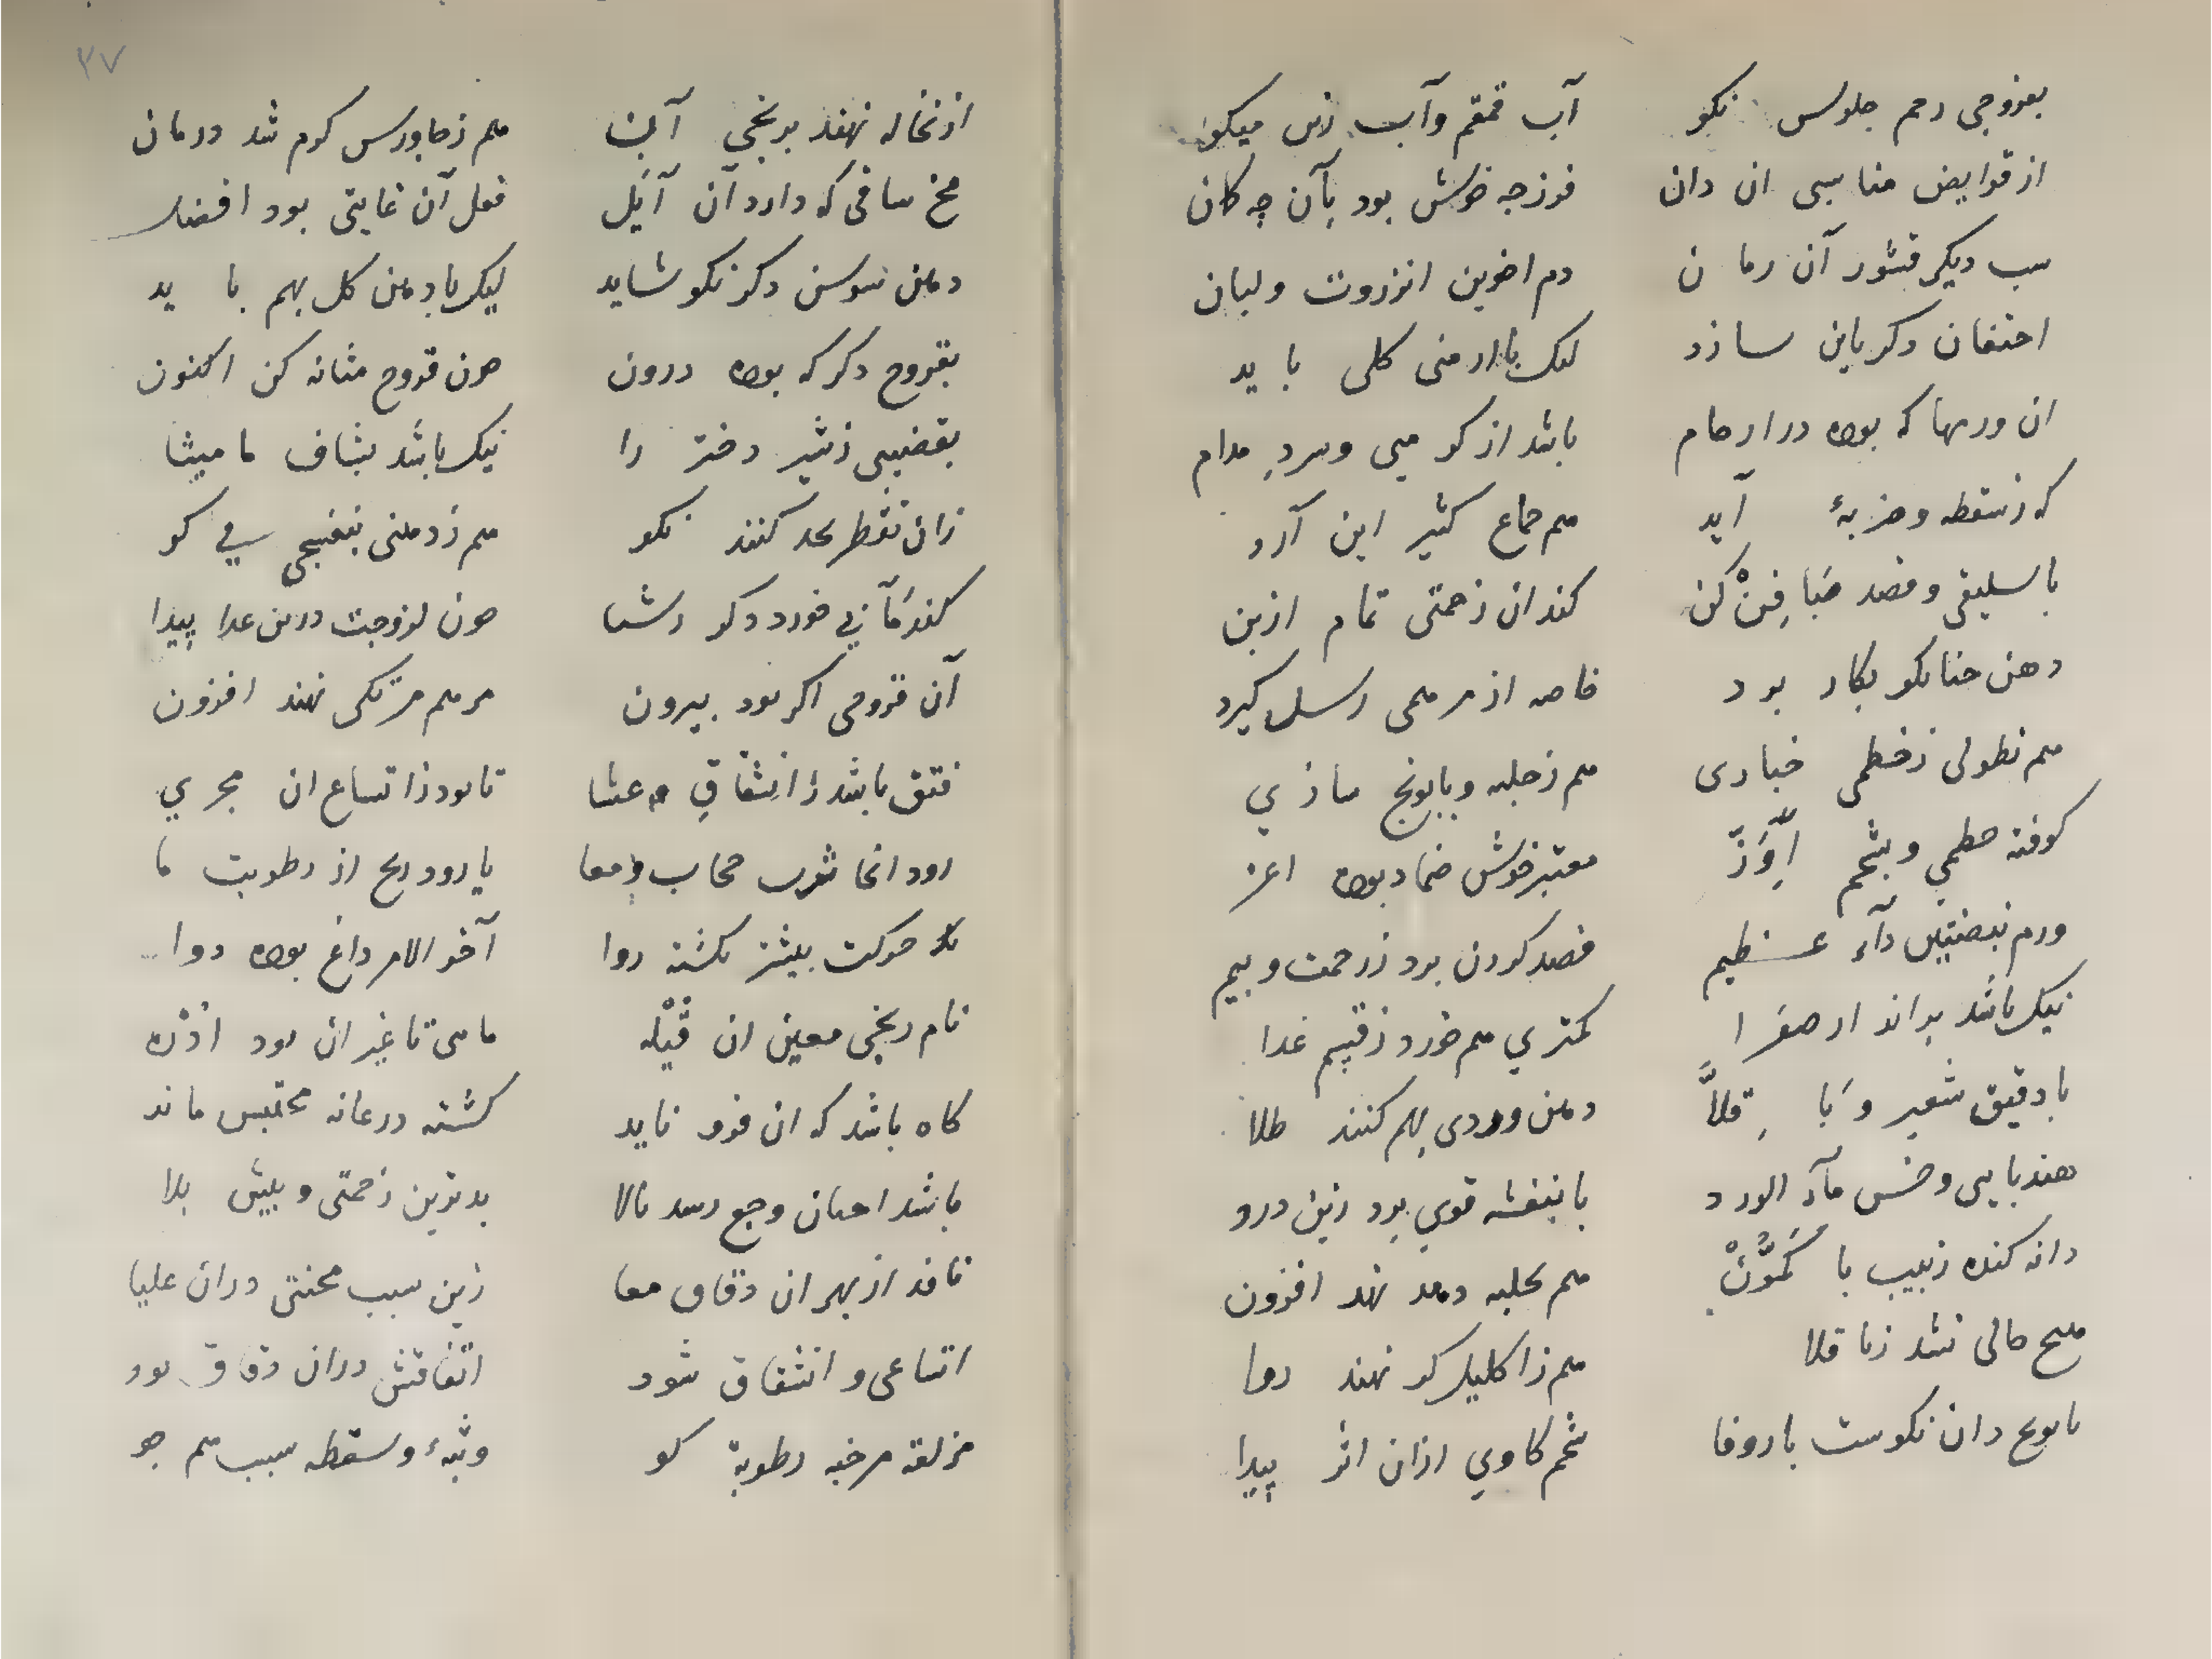 بعروجی رحم جلوس نکو آب قمقم وآب زن میکو
از قوابض مناسبی ان دان فرزجه خوش بود بآن چه کان
سب دیکر قشور آن رمان دم اخوین انزروت ولبان
احتقان دکر باین سازد لیک باارمنی کلی باید
ان ورمها که بوده در ارحام باشد از کرمی وسرد مدام
که زسقطه وضربهٔ آید هم جماع کثیر این آرد
باسلیقی وفصد صَافِنْ کن کند ان زحمتی تمام ازبن
دهن حنا نکو بکار برد خاصه از مرهمی رسل کیرد
هم نطولی زخطمی خبازی هم زحلبه وبابونج سازي
کوفته خطمي وبشحم اِوَزّ معتبر خوش ضماد بوده اعز
ورم نبصتیین دآء عظیم فصد کردن برد زرحمت وبیم
نیک باشد براند ار صفرا کمتري هم خورد زقیم غدا
بادقیق شعیر وَبَاقِلاَّ دهن وردی بهم کنند طلا
هندبایی وخس مآء الورد بابنفشه قوي برد زین درد
دانه کنده زبیب با کَمُّونْ هم بحلبه دهد نهد افزون
هیح حالی نشد زباقلا هم زاکلیل کر نهند روا
بابونج دان نکوست باروفا شحم کاوي ازان اثر پیدا
۳۷
ازنخاله نهند برنجي آن هم زجاورس کرم شد درمان
مخ ساقی که دارد آن آیَل فعل آن غایتی بود افضل
دهن سوسن دکر نکو شاید لیک بادهن کل بهم باید
بقروح دکر که بوده درون چون قروح مثانه کن اکنون
بقضیبی زشیر دختر را نیک باشد بشاف مامیثا
زان تقطر بحد کنند نکو هم زدهنی بنفسجی في کو
کندمَآئي خورد دکر رشتا چون لزوجت درین عدا پیدا
آن قروحی اکر بود بیرون مرهم مرتکی نهند افزون
فتق باشد زانشقاقِ غشا تا بود زاتساع ان مجري
رود انجا ثرب حجاب ومعا یا رود ریح از رطوبت ما
حرکت بیشتر نکشته روا آخر الامر داغ بوده دوا
نام ریحی معین ان قَیْله مایی تاغیر ان بود اُدْرَه
کاه باشد که ان فرو ناید کشته درعانه محتبس ماند
باشد احیان وجع رسد بالا بدترین زحمتی وبیش بلا
نافد ازبهر ان دقاق معا زین سبب محنتی دران علیا
اتساعی وانشقاق شود اتفاقش دران دقاق بود
مزلقه مرخیه رطوبة کو وثبهٔ وسقطه سبب هم جو